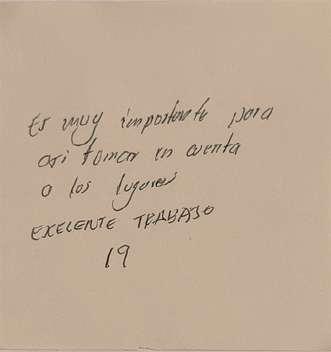 Es muy importante para
asi tomar en cuenta
a los lugares
EXELENTE TRABAJO
19